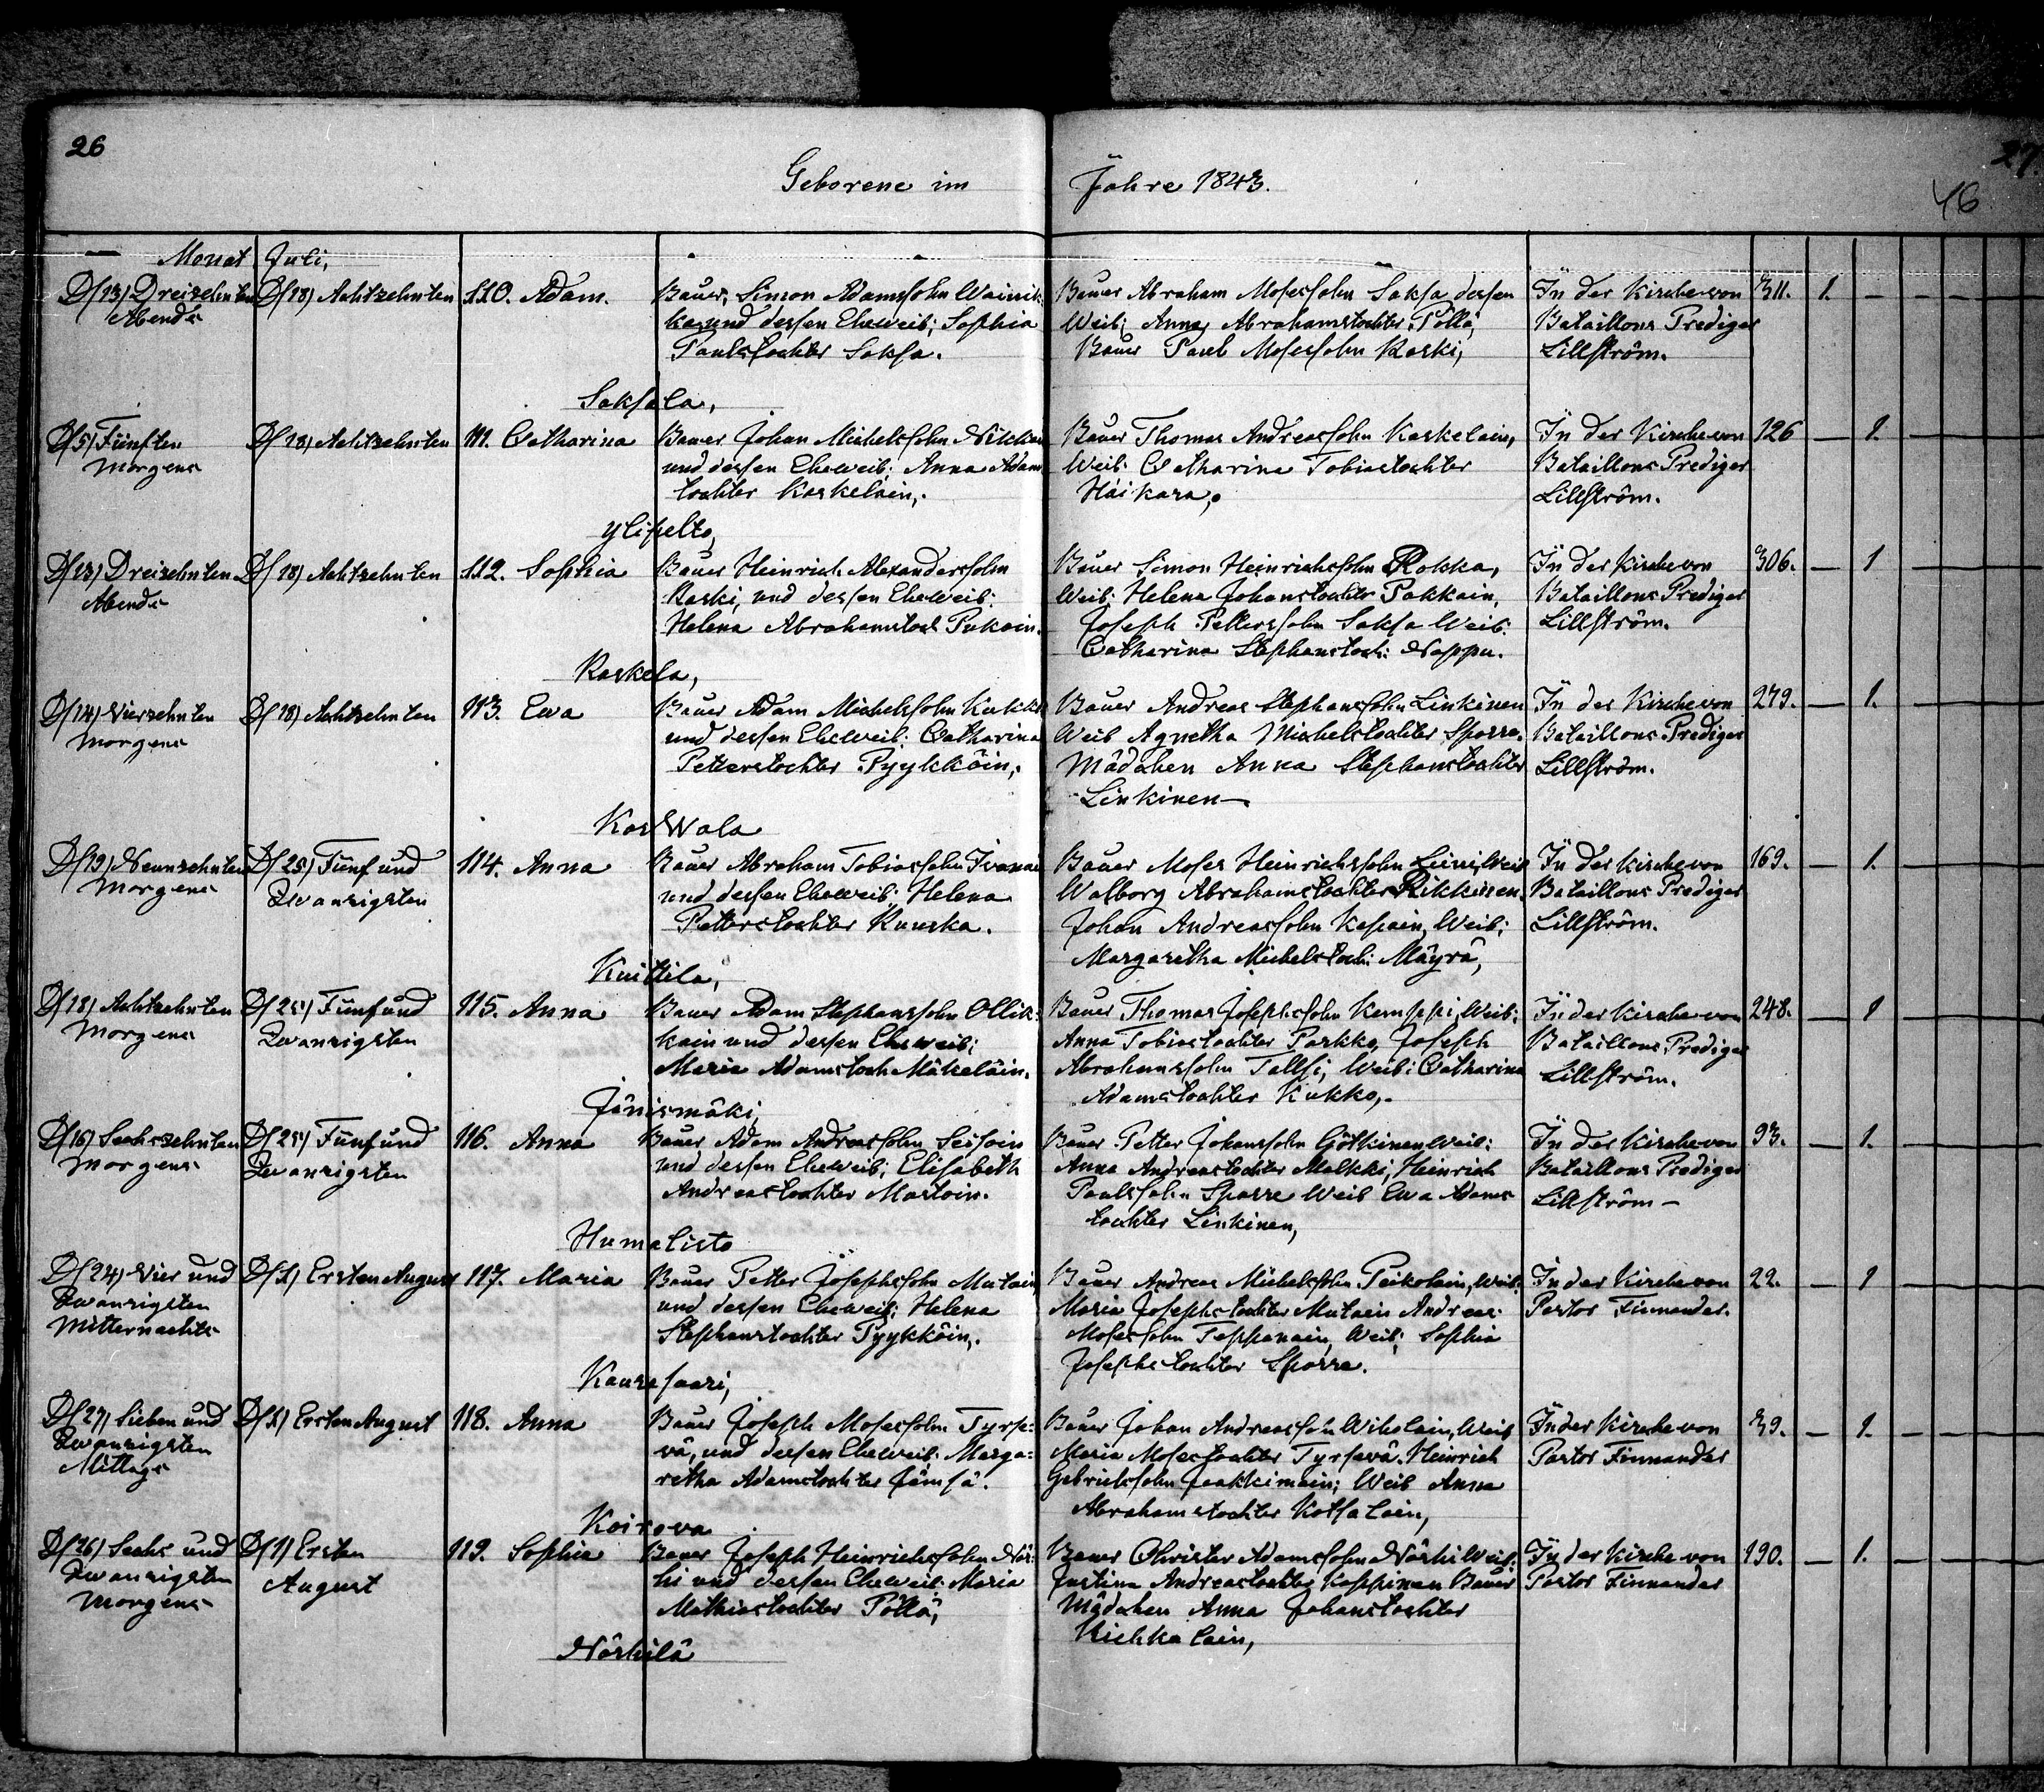 26
27.
46
Geborene im Jahre 1843.
Monat Juli,
D/13/ Dreizehnten D/18/ Achtzehnten 110. Adam. Bauer, Simon Adamssohn Wainik- Bauer Abraham Mosessohn Saksa dessen In der Kirche von 311. 1.
Abends ka, und dessen Eheweib; Sophia Weib; Anna, Abrahamstochter Pöllä, Bataillons Prediger
Paulstochter Saksa. Bauer Paul Mosessohn Kaski, Lillström.
Saksala,
D/5/ Fünften D/18/ Achtzehnten 111. Catharina Bauer Johan Michelssohn Bauer Thomas Andreassohn Koskelain, In der Kirche von 126 1.
Morgens und dessen Eheweib: Anna Adams Weib: Catharina Tobiastochter Bataillons Prediger
tochter Koskelain,. Häikara,. Lillström.
Ylipelto,
D/13/ Dreizehnten D/18/ Achtzehnten 112. Sophia Bauer Heinrich Alexanderssohn Bauer Simon Heinrichssohn Rokka, In der Kirche von 306. 1
Abends Kaski, und dessen Eheweib: Weib: Helena Johanstochter Pakkain, Bataillons Prediger
Helena Abrahamstoch Pukain. Joseph Petterssohn Saksa Weib: Lillström.
Catharina Stephanstoch: Nappu.
Kaskela,
D/14/ Vierzehnten D/18/ Achtzehnten 113. Ewa Bauer Adam Michelssohn Kukko Bauer Andreas Stephanssohn Linkinen In der Kirche von 279. 1.
Morgens und dessen Eheweib: Catharina Weib Agnetha Michelstochter Sparre. Bataillons Prediger
Petterstochter Pyykköin,. Mädchen Anna Stephanstochter Lillström.
Linkinen
D/19/ Neunzehnten D/25/ Fünf und 114. Anna Bauer Abraham Tobiassohn Iivanai Bauer Moses Heinrichssohn Weib In der Kirche von 169. 1.
Morgens Zwanzigsten und dessen Eheweib: Helena Walborg Abrahamstochter Rikkinen. Bataillons Prediger
Petterstochter Kuuska. Johan Andreassohn Kapain, Weib: Lillström.
Margaretha Michelstoch: Mäyrä,
Kuittila,
D/18/ Achtzehnten D/25/ Fünf und 115. Anna Bauer Adam Stephanssohn Ollik- Bauer Thomas Josephssohn Kemppi, Weib: In der Kirche von 248. 1
Morgens Zwanzigsten kain und dessen Eheweib: Anna Tobiastochter Parkko, Joseph Bataillons Prediger
Maria Adamstoch Mäkeläin. Abrahamssohn Tallsi, Weib: Catharina Lillström.
Adamstochter Kukko,.
Jänismäki,
D/16/ Sechszehnten D/25/ Fünf und 116. Anna Bauer Adam Andreassohn Seisoin Bauer Petter Johanssohn Götkinen Weib: In der Kirche von 93. 1.
Morgens Zwanzigsten und dessen Eheweib: Elisabeth Anna Andreastochter Malkki, Heinrich Bataillons Prediger
Andreastochter Martoin. Paulssohn Sparre Weib Ewa Adams Lillström
tochter Linkinen,
Humalisto
D/24/ Vier und D/1/ Ersten August 117. Maria Bauer Petter Josephssohn Mutain, Bauer Andreas Michelssohn Peikolain, Weib: In der Kirche von 22. 1
Zwanzigsten und dessen Eheweib: Helena Maria Josephstochter Mutain Andreas Pastor Finnander.
Mitternachts Stephanstochter Pyykköin,. Mosessohn Teppanain, Weib: Sophia
Josephstochter Sparre.
Kaurasaari,
D/27/ Sieben und D/1/ Ersten August 118. Anna Bauer Joseph Mosessohn Tyrse- Bauer Johan Andreassohn Wiholain, Weib In der Kirche von 39. 1.
Zwanzigsten vä, und dessen Eheweib: Marga- Maria Mosestochter Tyrsevä. Heinrich Pastor Finnander
Mittags retha Adamstochter Jämsä. Gabrielssohn Jaakkimain; Weib Anna
Abrahamstochter Kotsalain,
Koirova
D/26/ Sechs und D/1/ Ersten 119. Sophia Bauer Joseph Heinrichssohn När- Bauer Christer Adamssohn Närhi Weib: In der Kirche von 190. 1.
Zwanzigsten August hi und dessen Eheweib: Maria Justina Andreastochter Koppinen Bauer Pastor Finnander
Morgens Mathiastochter Pöllä, Mädchen Anna Johanstochter
Kiehkalain,
Närhilä